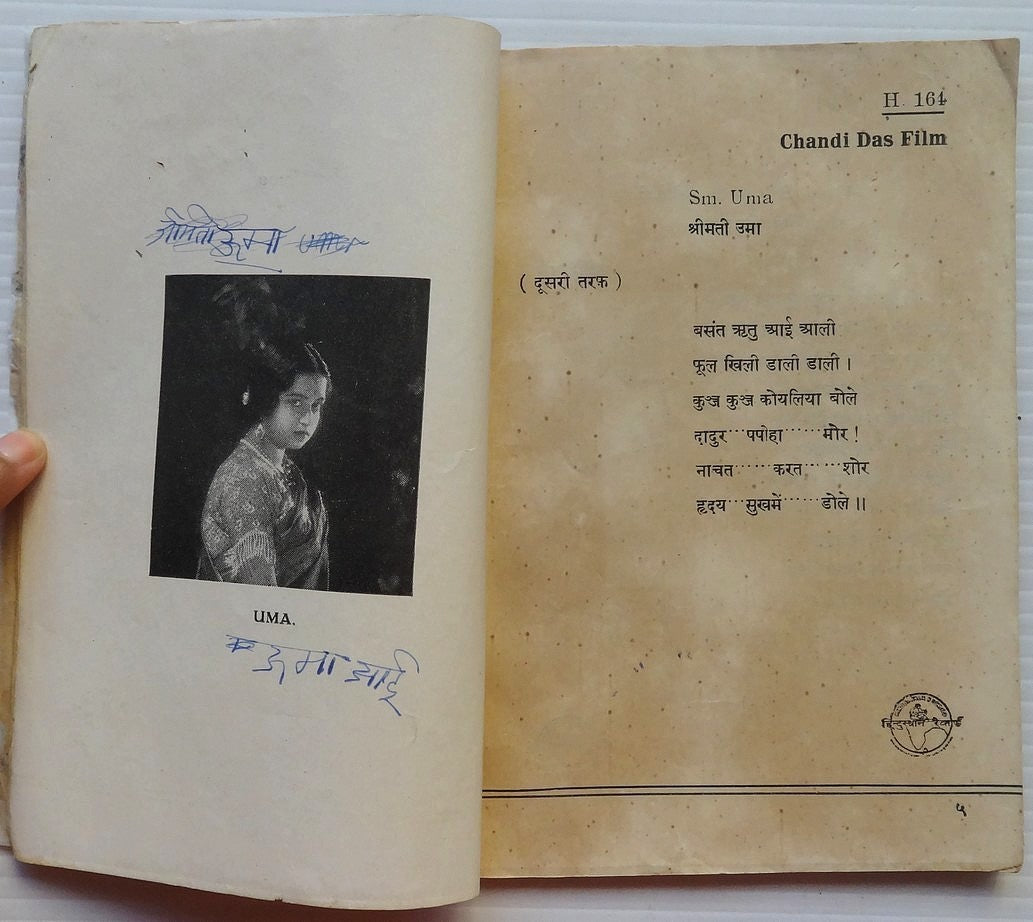 श्रीमती ऊमा
UMA.
ऊमा आई
H. 164
Chandi Das Film
Sm. Uma
श्रीमती उमा
( दूसरी तरफ़ )
बसंत ऋतु आई आली
फूल खिली डाली डाली ।
कुञ्ज कुञ्ज कोयलिया बोले
दादुर···पपीहा······मोर !
नाचत······करत······शोर
हृदय···सुखमें······डोले ॥
हिन्दुस्थान रेकार्ड
५